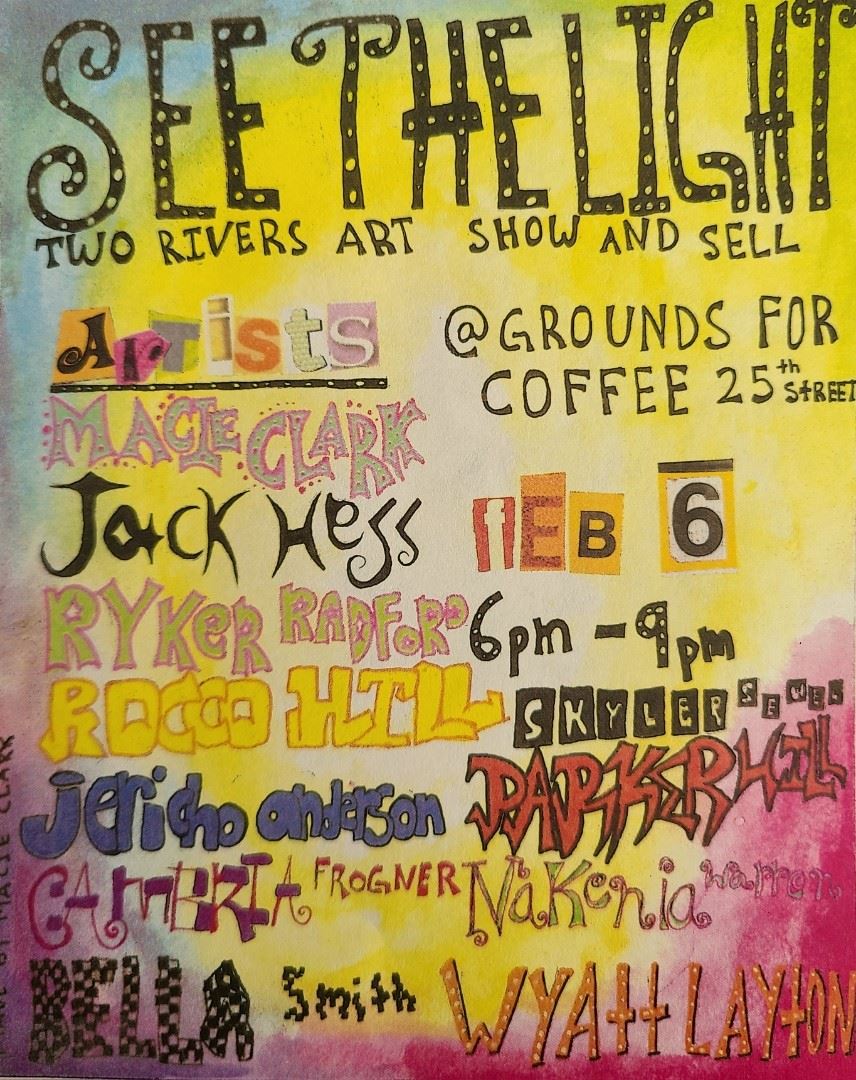 SEE THE LIGHT
TWO RIVERS ART SHOW AND SELL
Artists
@ GROUNDS FOR
COFFEE 25th STREET
MACIE CLARK
Jack Hess
FEB 6
RYKeR RADFORD
6pm - 9pm
ROCCO HILL
SKYLER
jericho anderson
PARKER HILL
CAMBRIA FROGNER
NaKenia warren
BELLA Smith
WYAtt LAYtON
BY MACIE CLARK